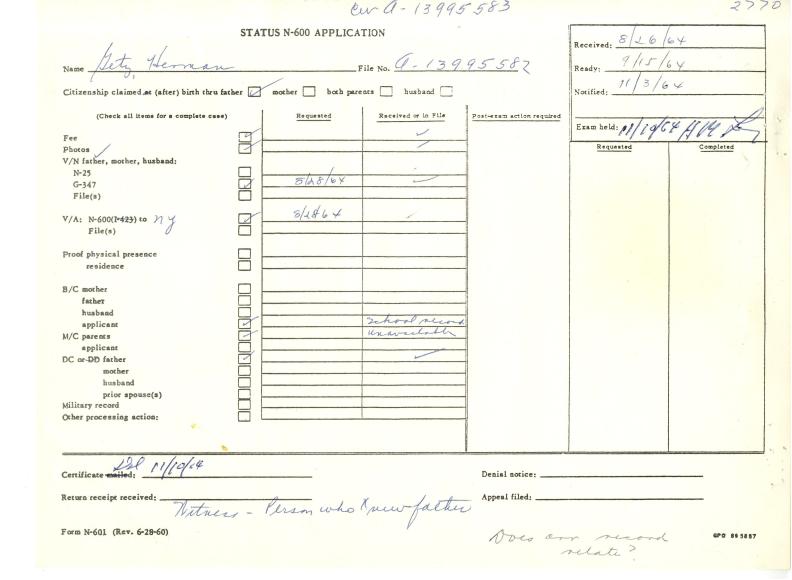 cur A-13995583
2770
STATUS N-600 APPLICATION
Name Getz, Herman File No. A-13995582
Citizenship claimed at (after) birth thru father mother both parents husband
Received: 8/26/64
Ready: 9/15/64
Notified: 11/3/64
Exam held: 11/10/64
(Check all items for a complete case) Requested Received or in File Post-exam action required Requested Completed
Fee
Photos
V/N father, mother, husband:
N-25
G-347 8/28/64
File(s)
V/A: N-600(I-423) to NY 8/28/64
File(s)
Proof physical presence
residence
B/C mother
father
husband
applicant School record
M/C parents unavailable
applicant
DC or DD father
mother
husband
prior spouse(s)
Military record
Other processing action:
Certificate mailed: Del 11/10/64 Denial notice:
Return receipt received: Appeal filed:
Witness - Person who knew father
Form N-601 (Rev. 6-28-60)
Does our record
relate?
GPO 895887